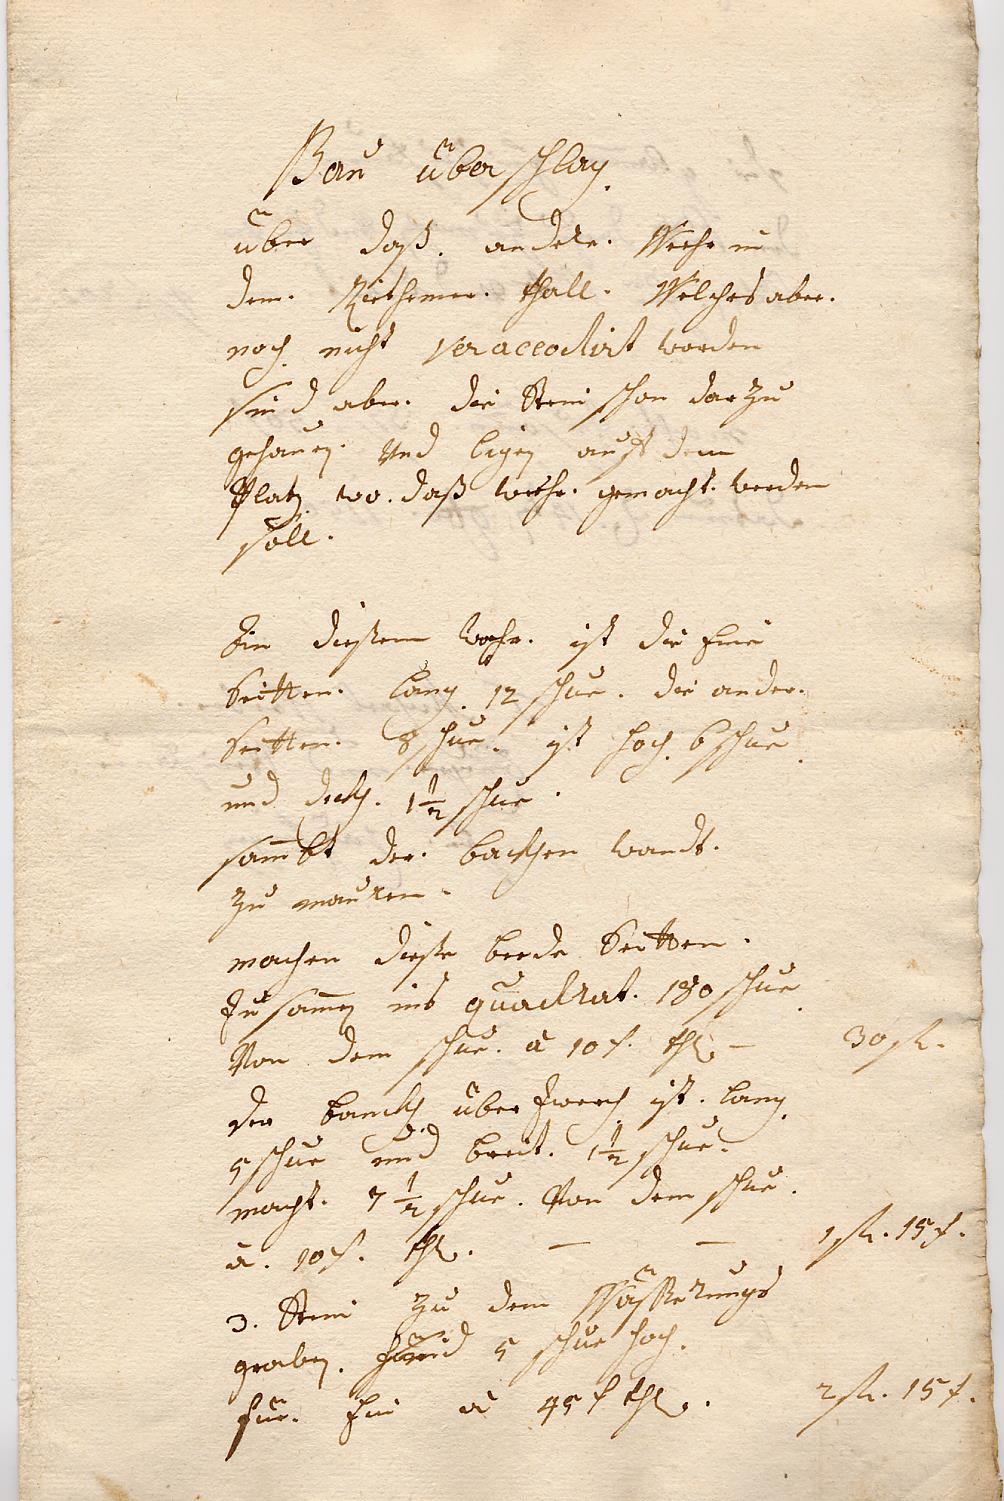 Bau überschlag
über daß. andere. Wehr in
dem. Riethemer. thall. Welches aber.
noch nicht veraccodirt worden
sind aber. die Stein schon darzu
gehauen. und ligen auf dem
Platz wo. daß wehr. gemacht. werden
soll.
An diesem wehr. ist die Eine
seitten. lang. 12 schue. die ander.
seitten. 8 schue. ist hoch. 6 schue
und dickh. 1½ schue.
sambt der. backhen wandt.
zu mauren.
machen diese beede seitten.
zusamen ins quadrat. 180 schue
Von dem schue. a 10 x. thl. — 30 fl.
der banckh überzwerch ist. lang.
5 schue und breit. 1½ schue.
macht. 7½ schue. Von dem schue.
a. 10 x. thl. — — 1 fl. 15 x.
3. Stein zu dem Wässerungs
graben. 5 schue hoch.
für. Ein a 45 x thl. 2 fl. 15 x.